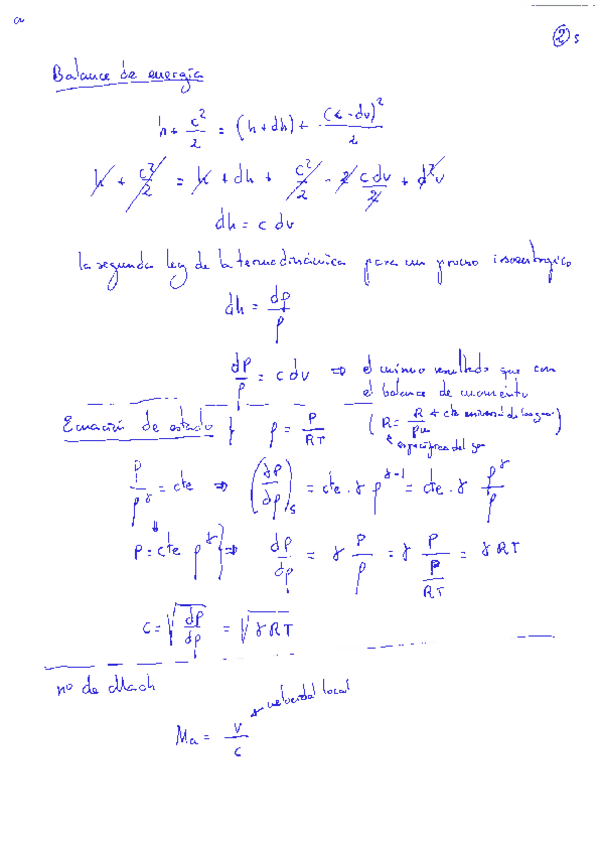 ②
Balance de energía
h + c²/2 = (h + dh) + (c - dv)²/2
h + c²/2 = h + dh + c²/2 - 2 c dv/2 + d²v
dh = c dv
la segunda ley de la termodinámica para un proceso isoentrópico
dh = dp/ρ
dP/ρ = c dv ⇒ el mismo resultado que con
el balance de momento
Ecuación de estado } ρ = P/RT (R = R/pm ← cte universal de los gases)
específica del gas
P/ρ^γ = cte ⇒ (∂P/∂ρ)s = cte · γ ρ^γ-1 = cte · γ ρ^γ/ρ
P = cte ρ^γ } ⇒ dP/dρ = γ P/ρ = γ P/(P/RT) = γ RT
c = √(dP/dρ) = √(γRT)
nº de Mach
Ma = v/c → velocidad local